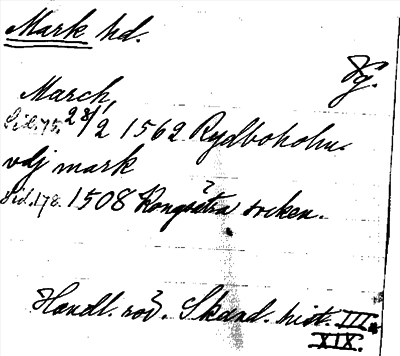 Mark hd.
Vg.
March
Sid. 75. 28/2 1562 Rydboholm.
vdj mark
Sid. 178. 1508 Kongsätra socken.
Handl. rör. Skand. hist. III.
XIX.